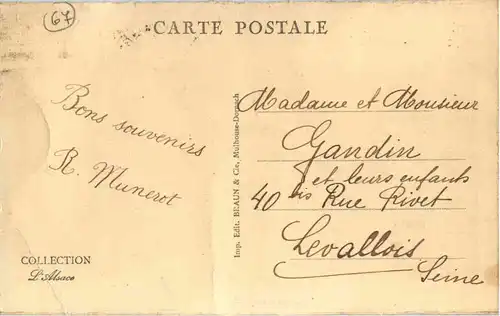 67
CARTE POSTALE
Bons souvenirs
R. Munerot
COLLECTION
L'Alsace
Imp. Edit. BRAUN & Cie, Mulhouse-Dornach
Madame et Monsieur
Gandin
et leurs enfants
40 bis Rue Rivet
Levallois
Seine